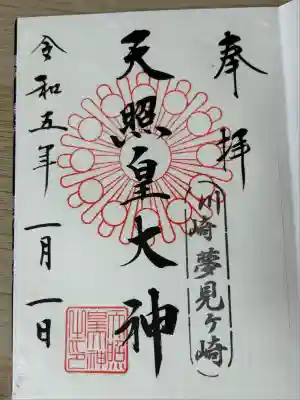 奉拝
(川崎夢見ヶ崎)
天照皇大神
令和五年一月一日